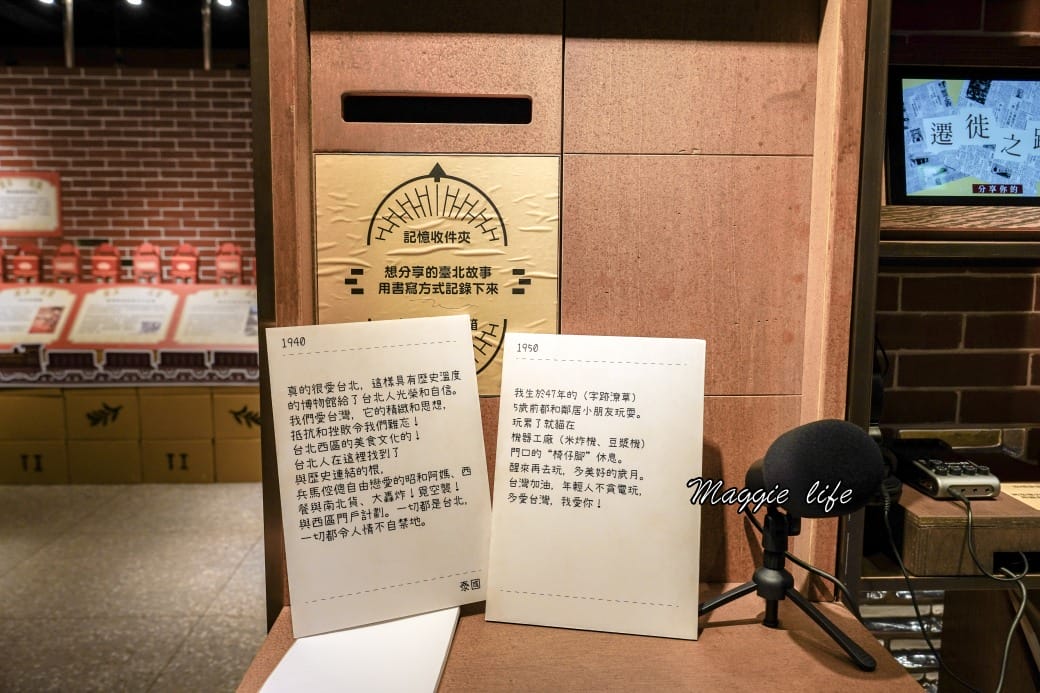 記憶收件夾
想分享的臺北故事
用書寫方式記錄下來
箱
1940
真的很愛台北，這樣具有歷史溫度
的博物館給了台北人光榮和自信。
我們愛台灣，它的精緻和思想，
抵抗和挫敗令我們難忘！
台北西區的美食文化的！
台北人在這裡找到了
與歷史連結的根，
兵馬倥傯自由戀愛的昭和阿媽、西
餐與南北貨、大轟炸！覓空襲！
與西區門戶計劃。一切都是台北，
一切都令人情不自禁地。
泰國
1950
我生於47年的（字跡潦草）
5歲前都和鄰居小朋友玩耍。
玩累了就貓在
機器工廠（米炸機、豆漿機）
門口的“椅仔腳”休息。
醒來再去玩，多美好的歲月。
台灣加油，年輕人不貪電玩，
多愛台灣，我愛你！
遷徙之路
分享你的
Maggie life